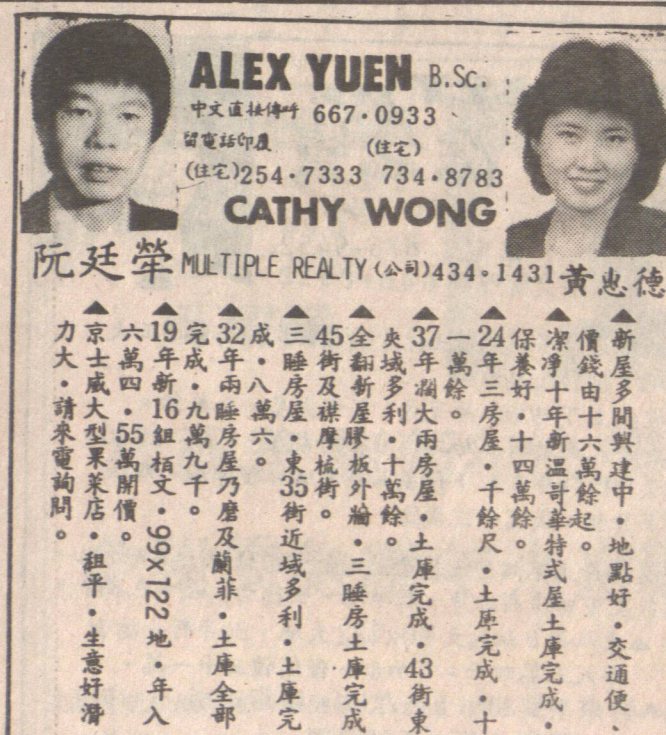 ALEX YUEN B.Sc.
中文直接傳呼 667·0933
留電話印覆 (住宅)
(住宅)254·7333 734·8783
CATHY WONG
阮廷犖 MULTIPLE REALTY (公司)434·1431 黃惠德
▲新屋多間興建中·地點好·交通便、
價錢由十六萬餘起。
▲潔淨十年新溫哥華特式屋土庫完成·
保養好·十四萬餘。
▲24年三房屋·千餘尺·土庫完成·十
一萬餘。
▲37年濶大兩房屋·土庫完成·43街東
夾域多利·十萬餘。
▲全翻新屋膠板外牆·三睡房土庫完成
45街及祺摩梳街。
▲三睡房屋·東35街近域多利·土庫完
成·八萬六。
▲32年兩睡房屋乃磨及蘭菲·土庫全部
完成·九萬九千。
▲19年新16組栢文·99x122地·年入
六萬四·55萬開價。
▲京士威大型果菜店·租平·生意好潛
力大·請來電詢問。